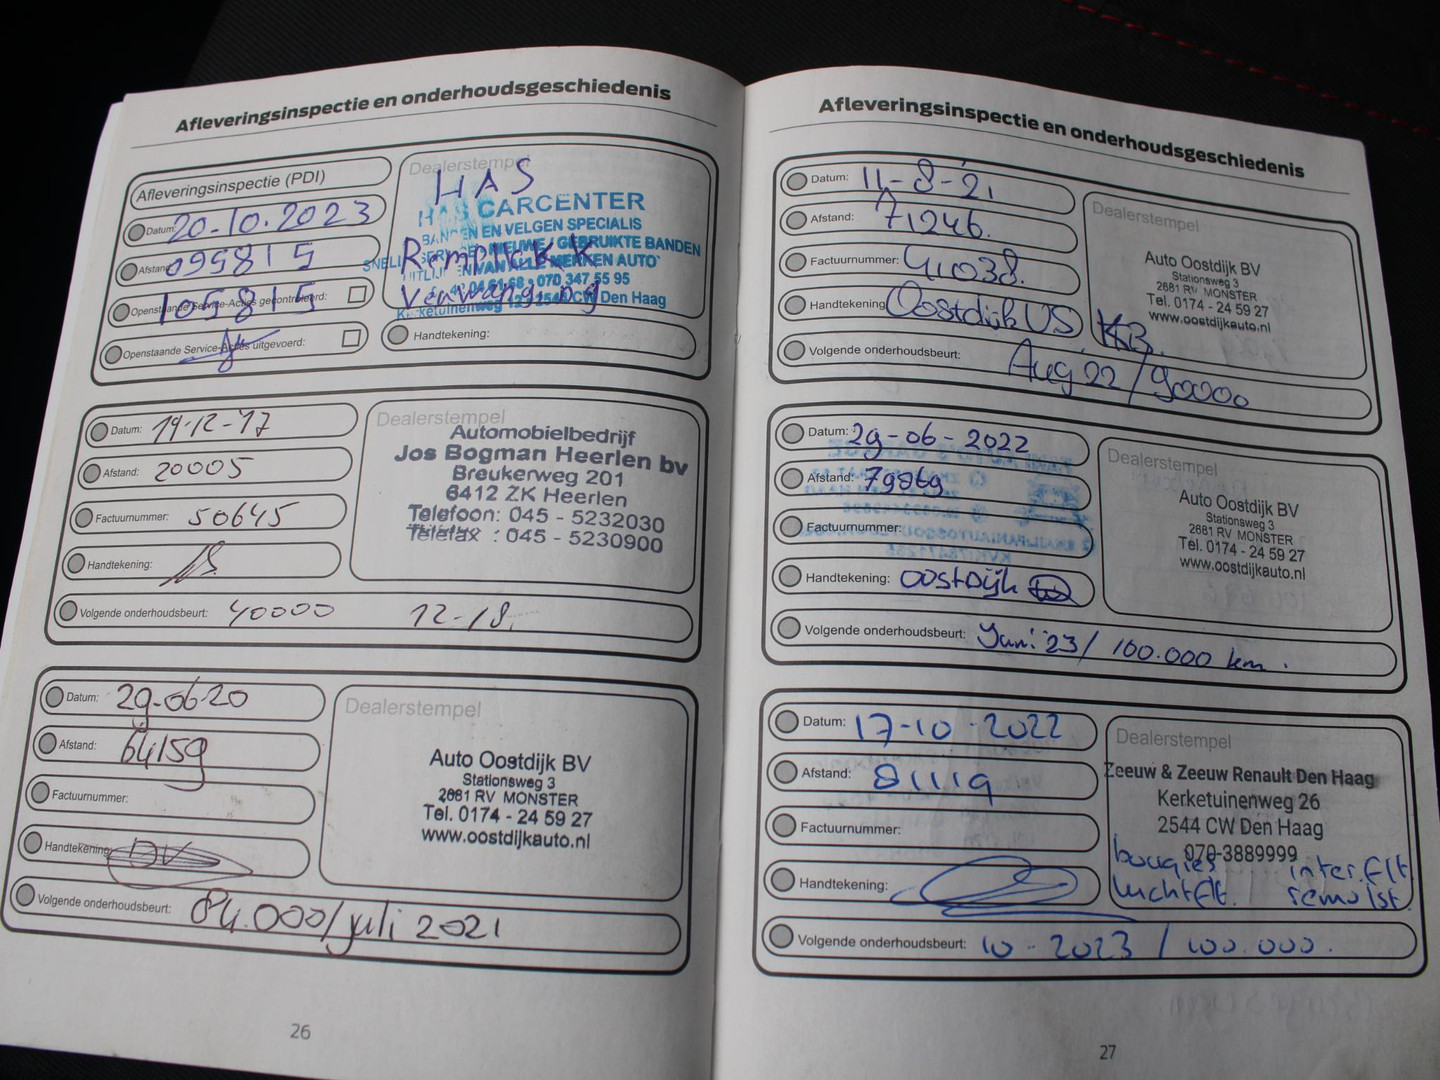 Afleveringsinspectie en onderhoudsgeschiedenis
Afleveringsinspectie (PDI)
Datum: 20-10.2023
Afstand: 095815
Openstaande Service-Acties gecontroleerd:
105815
Openstaande Service-Acties uitgevoerd:
Dealerstempel
HAS
HAS CARCENTER
BANDEN EN VELGEN SPECIALIS
NIEUWE / GEBRUIKTE BANDEN
VAN ALLE MERKEN AUTO
070 347 55 95
CW Den Haag
Handtekening:
Datum: 19-12-17
Afstand: 20005
Factuurnummer: 50645
Handtekening:
Volgende onderhoudsbeurt: 40000 12-18.
Dealerstempel
Automobielbedrijf
Jos Bogman Heerlen bv
Breukerweg 201
6412 ZK Heerlen
Telefoon: 045 - 5232030
Telefax : 045 - 5230900
Datum: 29-06-20
Afstand: 64159
Factuurnummer:
Handtekening: DV
Volgende onderhoudsbeurt: 84.000/juli 2021
Dealerstempel
Auto Oostdijk BV
Stationsweg 3
2681 RV MONSTER
Tel. 0174 - 24 59 27
www.oostdijkauto.nl
26
Afleveringsinspectie en onderhoudsgeschiedenis
Datum: 11-8-21
Afstand: 71246.
Factuurnummer: 41038.
Handtekening: Oostdijk
Volgende onderhoudsbeurt: Aug 22 / 90000
Dealerstempel
Auto Oostdijk BV
Stationsweg 3
2681 RV MONSTER
Tel. 0174 - 24 59 27
www.oostdijkauto.nl
Datum: 29-06-2022
Afstand: 79969
Factuurnummer:
Handtekening: Oostdijk
Volgende onderhoudsbeurt: Juni '23 / 100.000 km.
Dealerstempel
Auto Oostdijk BV
Stationsweg 3
2681 RV MONSTER
Tel. 0174 - 24 59 27
www.oostdijkauto.nl
Datum: 17-10-2022
Afstand: 81119
Factuurnummer:
Handtekening:
Volgende onderhoudsbeurt: 10-2023 / 100.000.
Dealerstempel
Zeeuw & Zeeuw Renault Den Haag
Kerketuinenweg 26
2544 CW Den Haag
070-3889999
bougies inter.flt
luchtflt. remvlst.
27